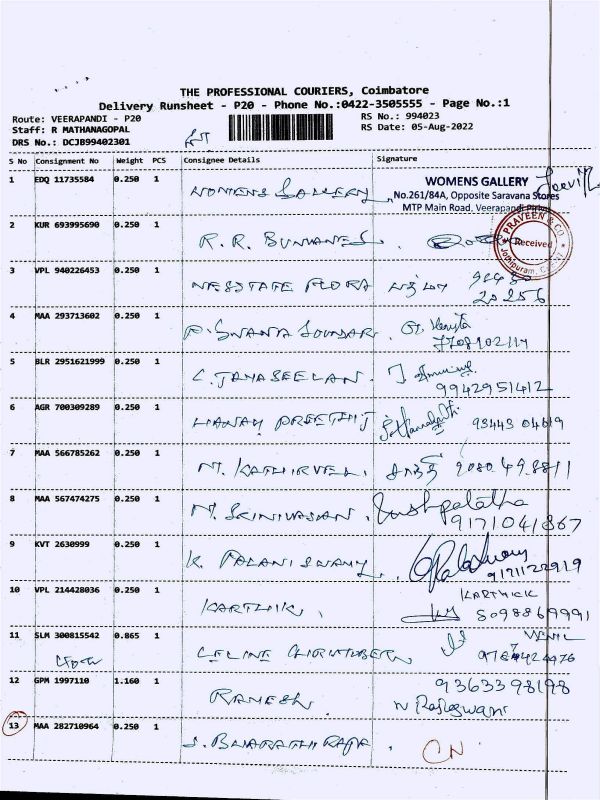 THE PROFESSIONAL COURIERS, Coimbatore
Delivery Runsheet - P20 - Phone No.:0422-3505555 - Page No.:1
Route: VEERAPANDI - P20 RS No.: 994023
Staff: R MATHANAGOPAL RS Date: 05-Aug-2022
DRS No.: DCJB99402301
S No Consignment No Weight PCS Consignee Details Signature
1 EDQ 11735584 0.250 1 WOMENS GALLERY
WOMENS GALLERY
No.261/84A, Opposite Saravana Stores
MTP Main Road, Veerapandi
2 KUR 693995690 0.250 1 R. R.
PRAVEEN & CO
Received
Jothipuram,
3 VPL 940226453 0.250 1 FLORA
20256
4 MAA 293713602 0.250 1
5 BLR 2951621999 0.250 1 C. JAYASEELAN.
9942951412
6 AGR 700309289 0.250 1 PREETHI 93443 04619
7 MAA 566785262 0.250 1 M. KATHIRVEL. 9080 49 8811
8 MAA 567474275 0.250 1 M. SRINIVASAN. Pushpalatha
9171041867
9 KVT 2630999 0.250 1 K. PALANISWAMY
9171122919
10 VPL 214428036 0.250 1 KARTHIK. KARTHICK
8098869991
11 SLM 300815542 0.865 1 CELINE
12 GPM 1997110 1.160 1 RAMESH 9363398198
13 MAA 282710964 0.250 1 J. BHARATHI RAJA. CN